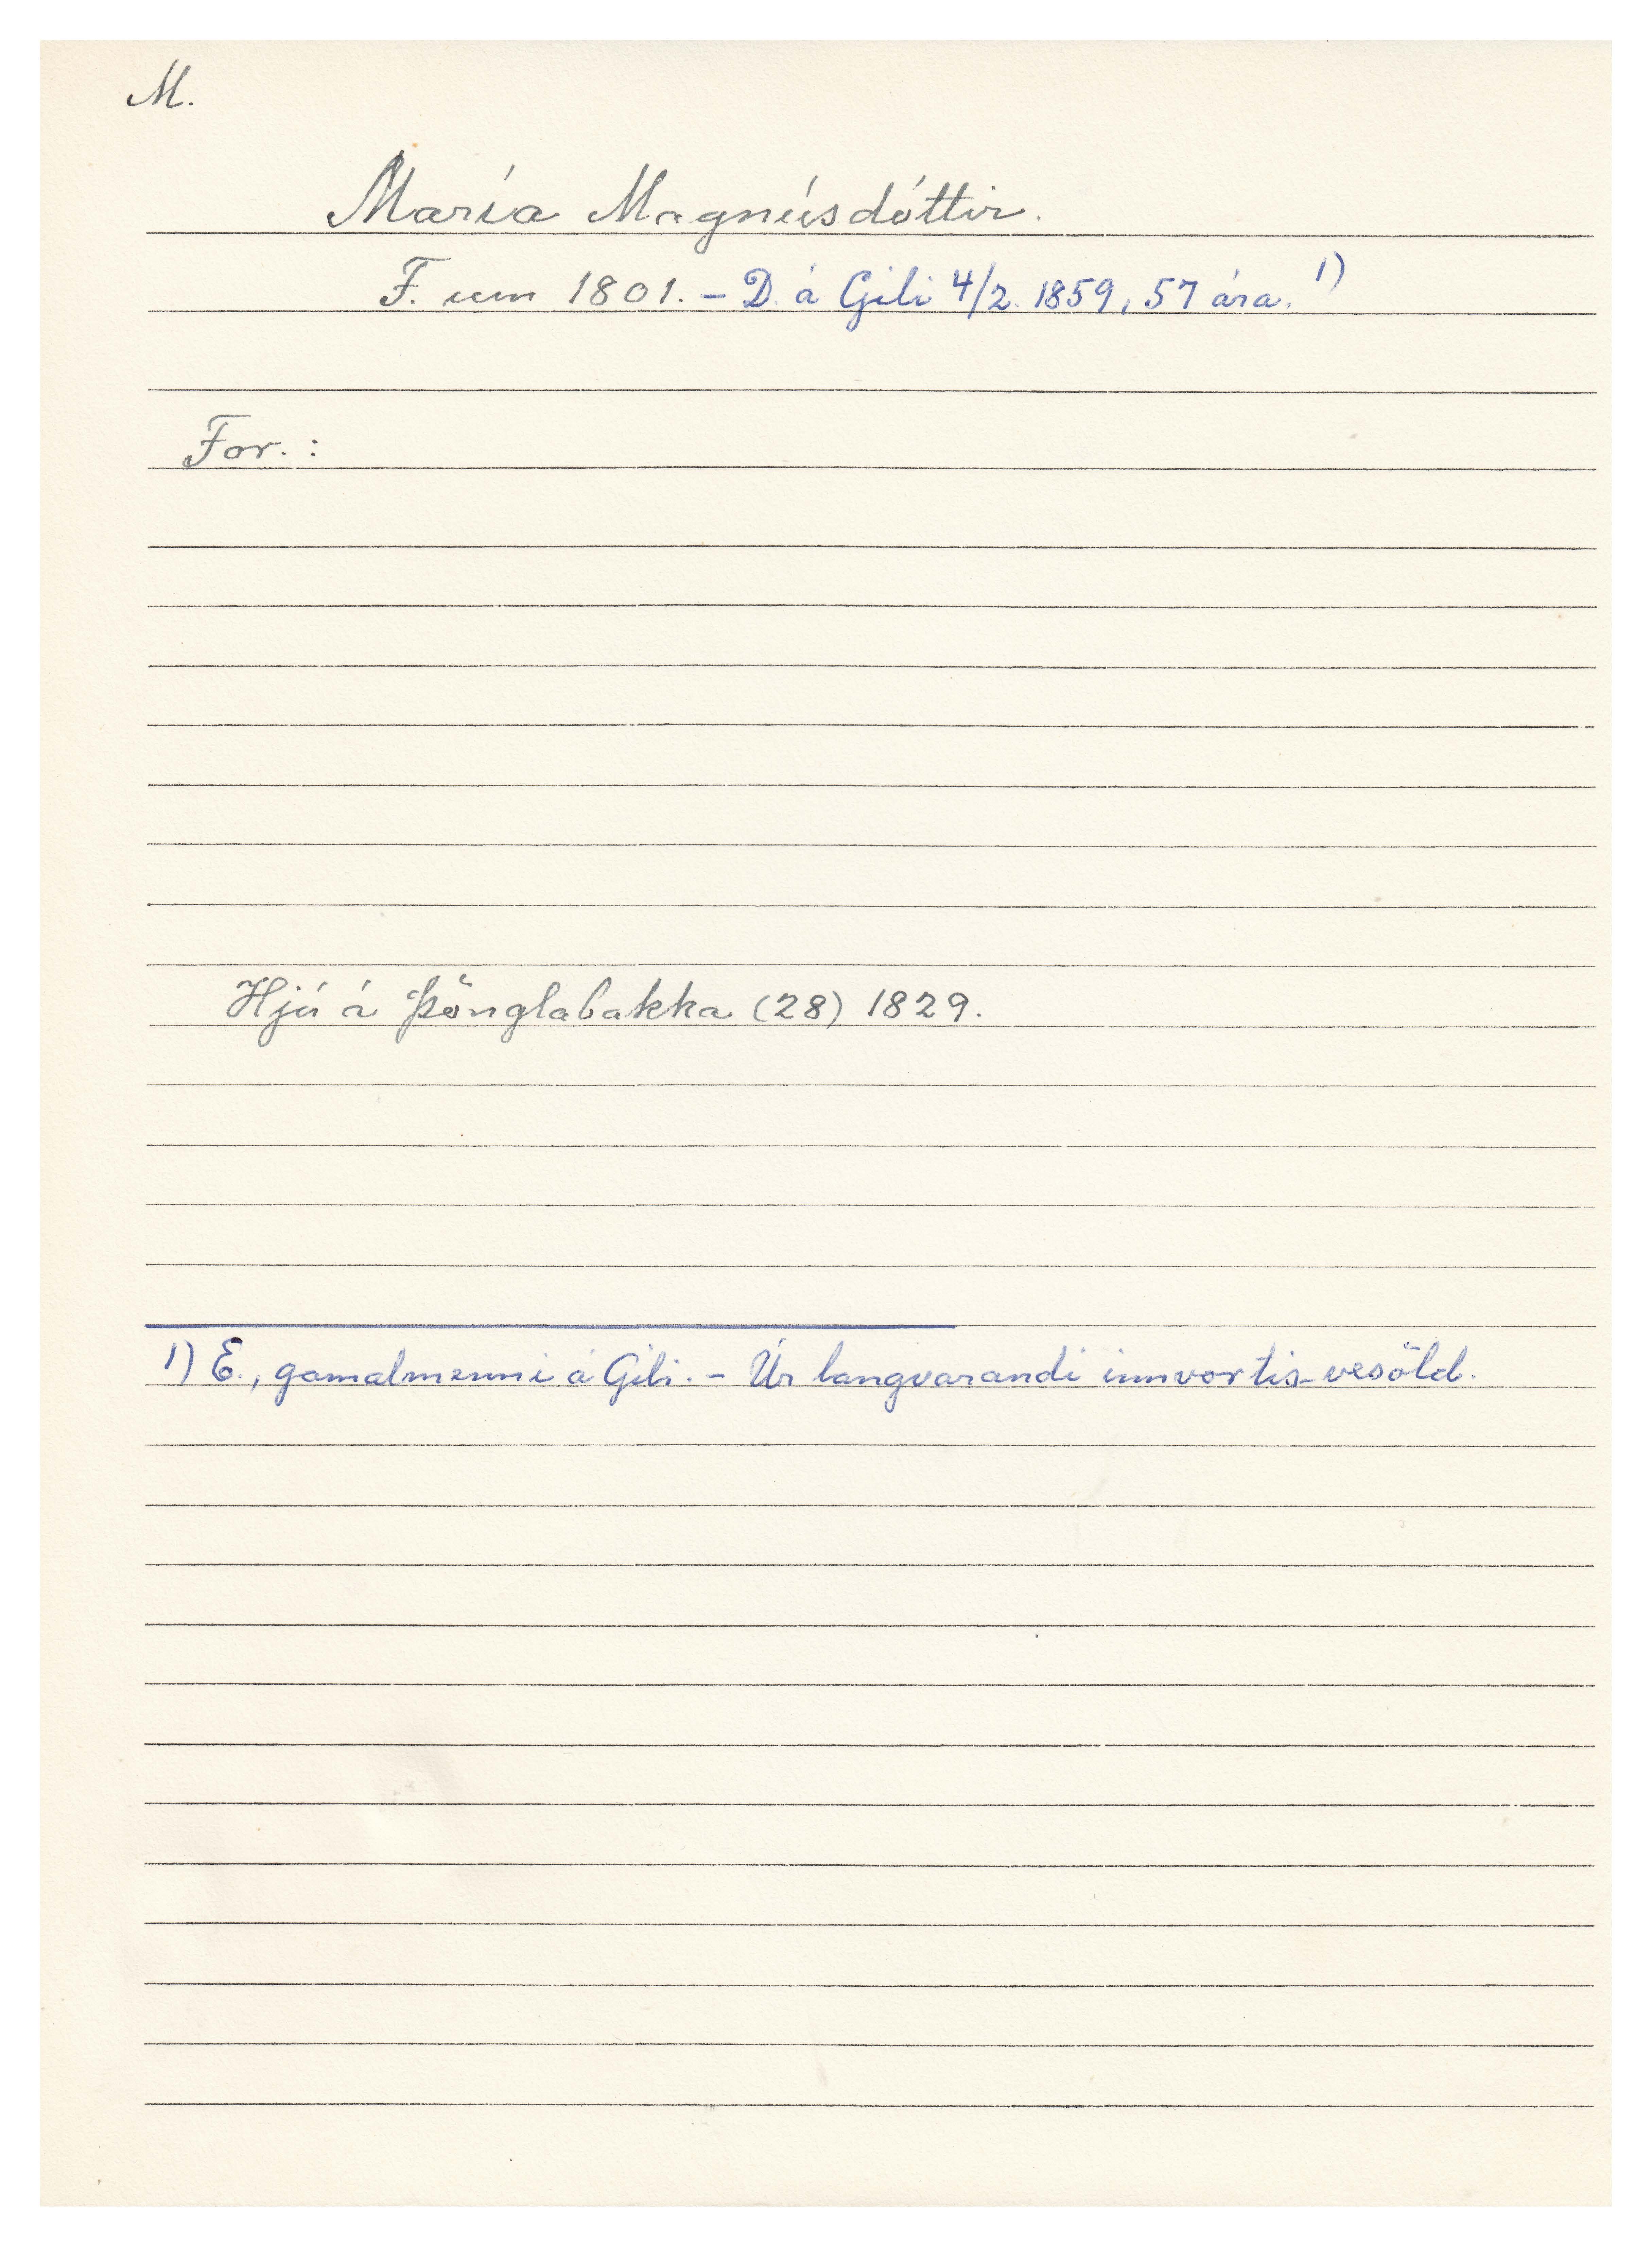 M.
María Magnúsdóttir.
F. um 1801. - D. á Gili 4/2. 1859, 57 ára. 1)
For. :
Hjú á Þönglabakka (28) 1829.
1) E., gamalmenni á Gili. - Úr langvarandi innvortis-vesöld.